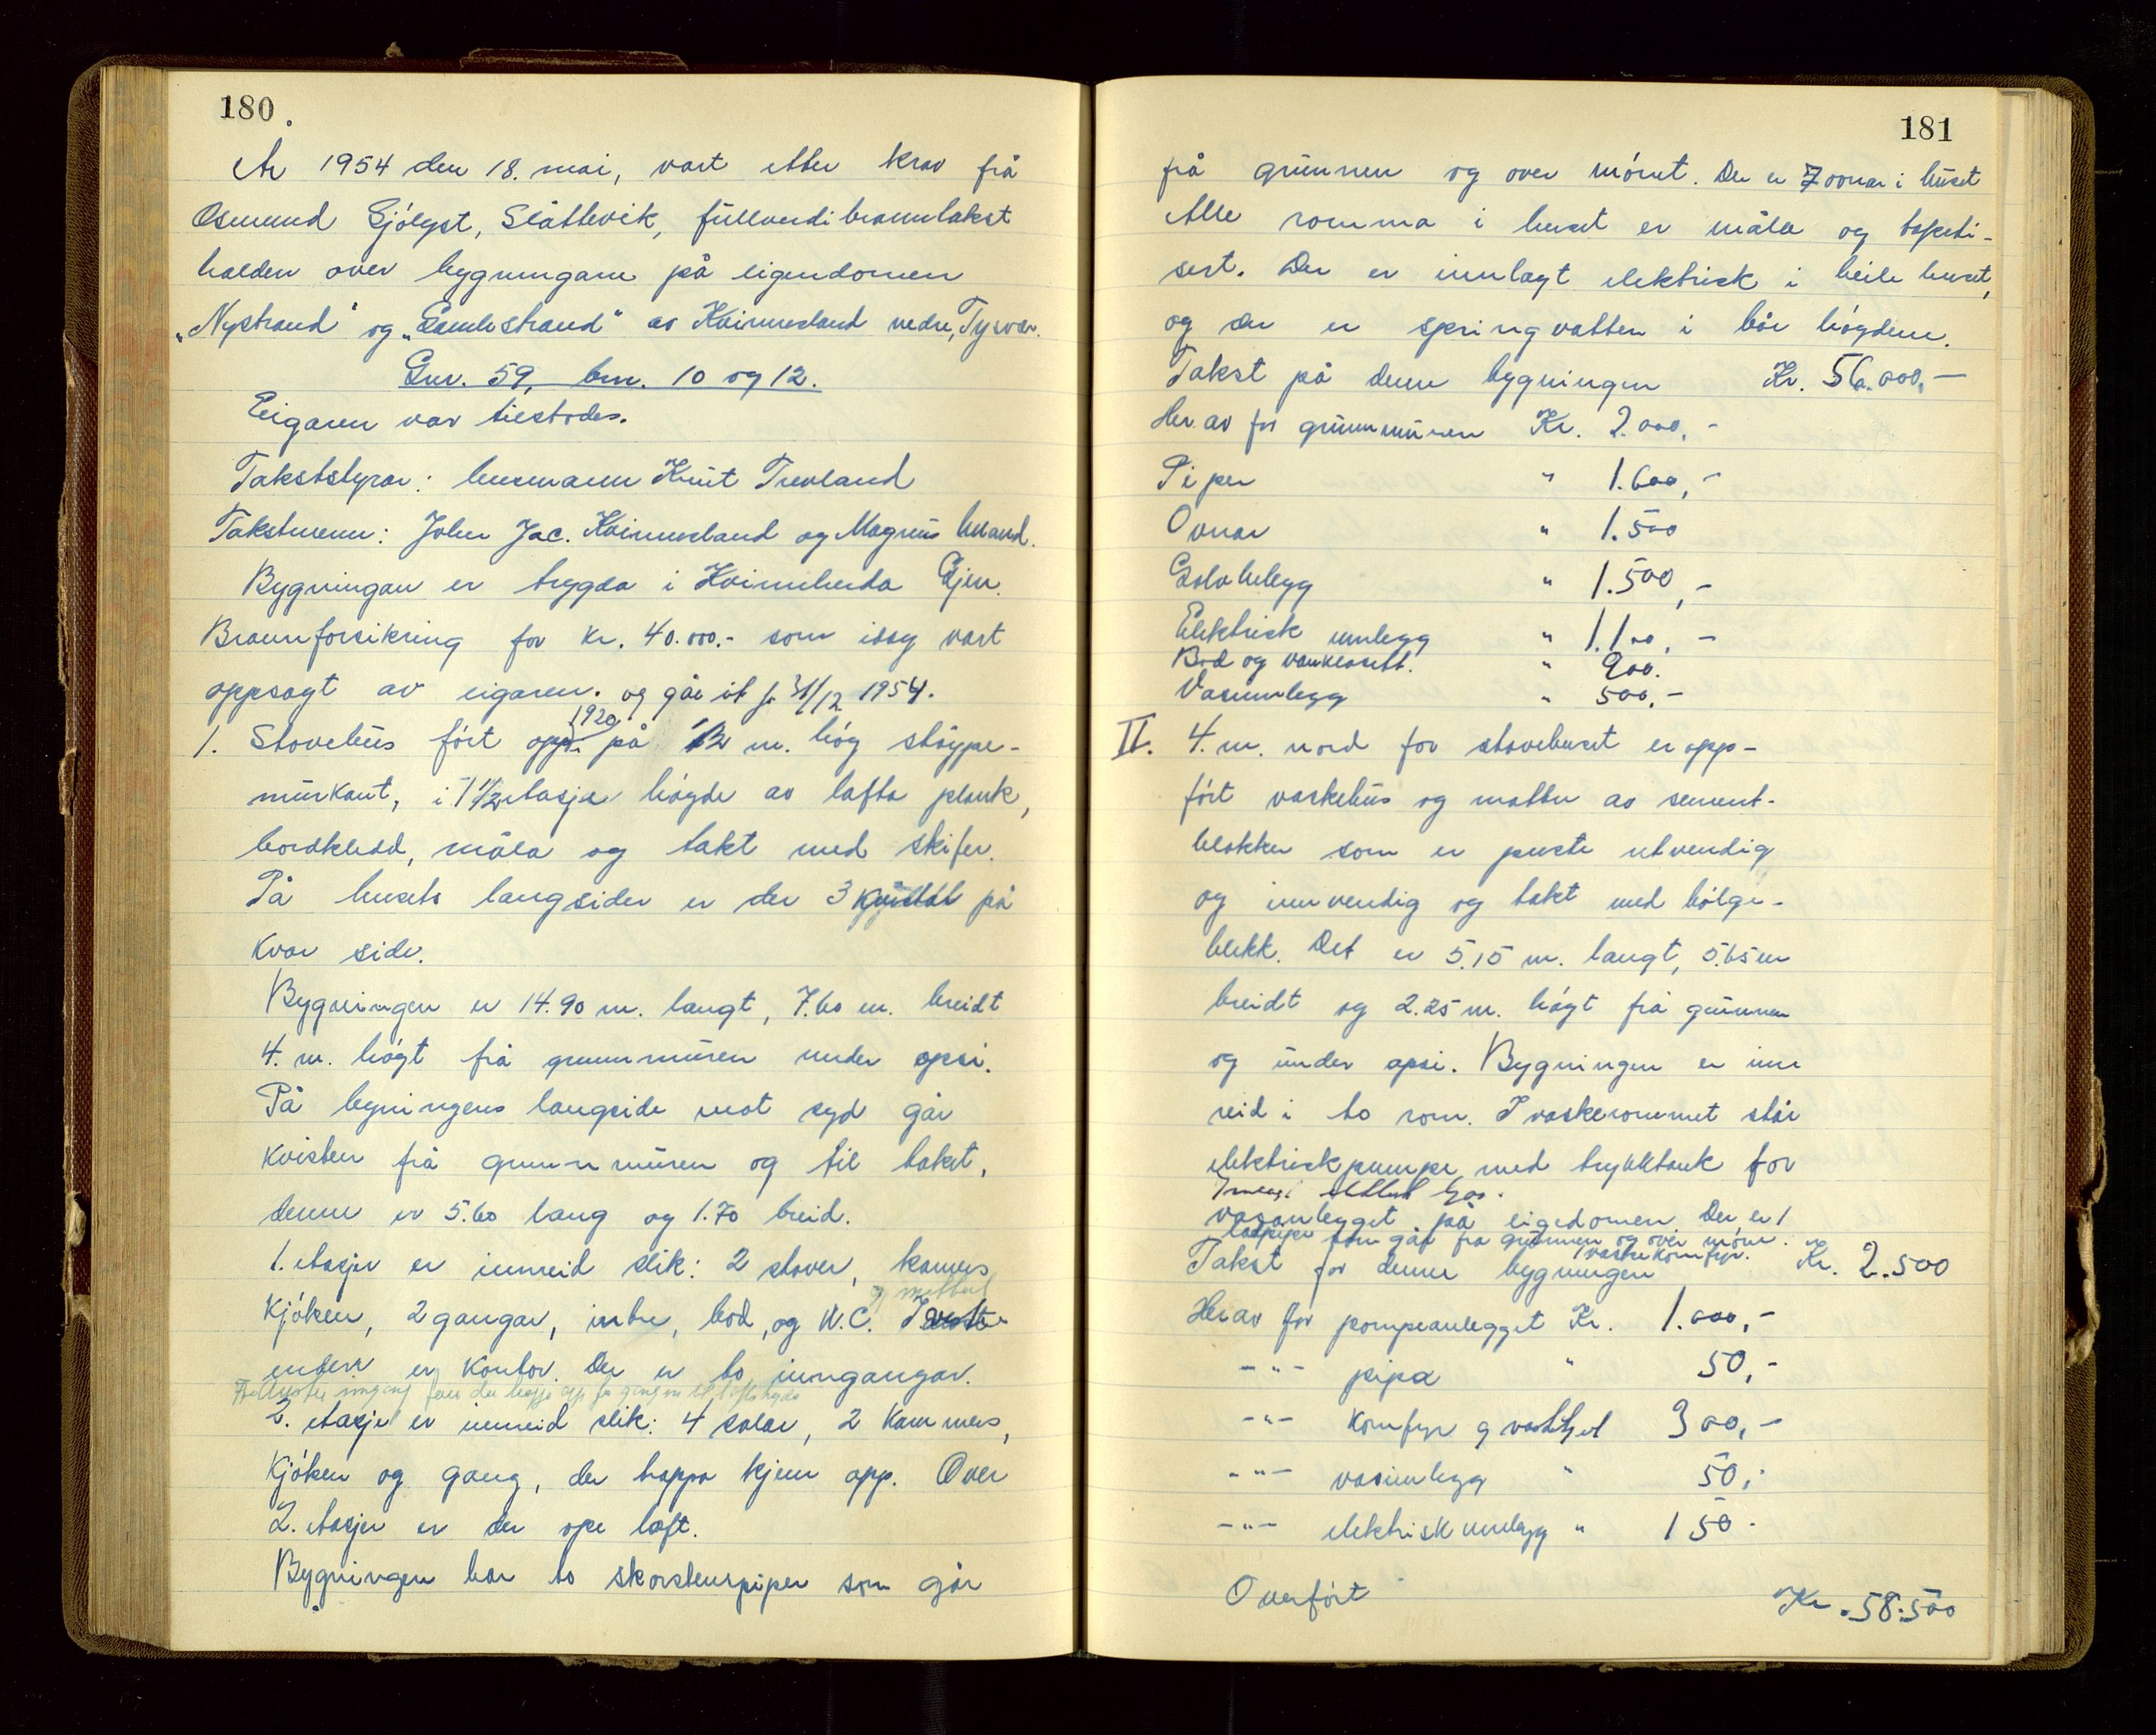 180
År 1954 den 18. mai, vart etter krav frå
Osmund Sjölyst, Slåttevik, fullverdibranntakst
halden over bygningane på eigendomen
„Nystrand" og „Gamlestrand" av Kvinnesland nedre, Tysvær.
Gnr. 59, bnr. 10 og 12.
Eigaren var tilstodes.
Takststyrar: lensmann Knut Trevland
Takstmenn: John Jac. Kvinnesland og Magnus
Bygningan er trygda i Kvinnherda Gjen.
Brannforsikring for kr. 40.000.- som idag vart
oppsagt av eigaren. og går ut pr 31/12 1954.
1920
1. Stovehus fört opp på 1/2 m. hög stöype-
murkant, i 1 1/2 etasje högde av lafta plank,
bordkledd, måla og takt med skifer.
På husets langsider er der 3 på
kvar side.
Bygningen er 14.90 m. langt, 7.60 m. breidt
4. m. högt frå grunnmuren under opsi.
På bygningens langside mot syd går
kvisten frå grunnmuren og til taket,
denne er 5.60 lang og 1.70 breid.
1. etasje er innreid slik: 2 stover, kamers
og
Kjöken, 2 gangar, indre, bod, og W.C. I
enden er kontor. Der er to inngangar.
2. etasje er innreid slik: 4 salar, 2 Kammers,
Kjöken og gang, der trappa kjem opp. Over
2. etasje er der ope loft.
Bygningen har to skorsteinspiper som går
181
frå grunnen og over mönet. Der er 7 ovnar i huset
Alle romma i huset er måla og tapeti-
sert. Der er innlagt elektrisk i heile huset,
og der er springvatten i båe högdene.
Takst på denne bygningen Kr. 56.000,-
Her av for grunnmuren Kr. 2.000,-
Piper " 1.600,-
Ovnar " 1.500
Golvbelegg " 1.500,-
Elektrisk innlegg " 1.100,-
Bad og vannklosett. " 900.
Vassinnlegg " 500,-
II. 4. m. nord for stovehuset er opp-
fört vaskehus og matbu av sement-
blokker som er pussa utvendig
og innvendig og takt med bölge-
blekk. Det er 5.15 m. langt, 5.65 m
breidt og 2.25 m. högt frå grunnen
og under opsi. Bygningen er inn
reid i to rom. I vaskerommet står
elektrisk pumpe med trykktank for
vasanlegget på eigedomen. Der er 1
pipe som går fra grunnen og over möne.
1 vaskekomfyr.
Takst for denne bygningen Kr. 2.500
Her av for pompeanlegget Kr. 1.000,-
-"- pipa " 50,-
-"- Komfyr og 300,-
-"- vasinnlegg " 50,-
-"- elektrisk innlegg " 150-
Overfört Kr. 58.500